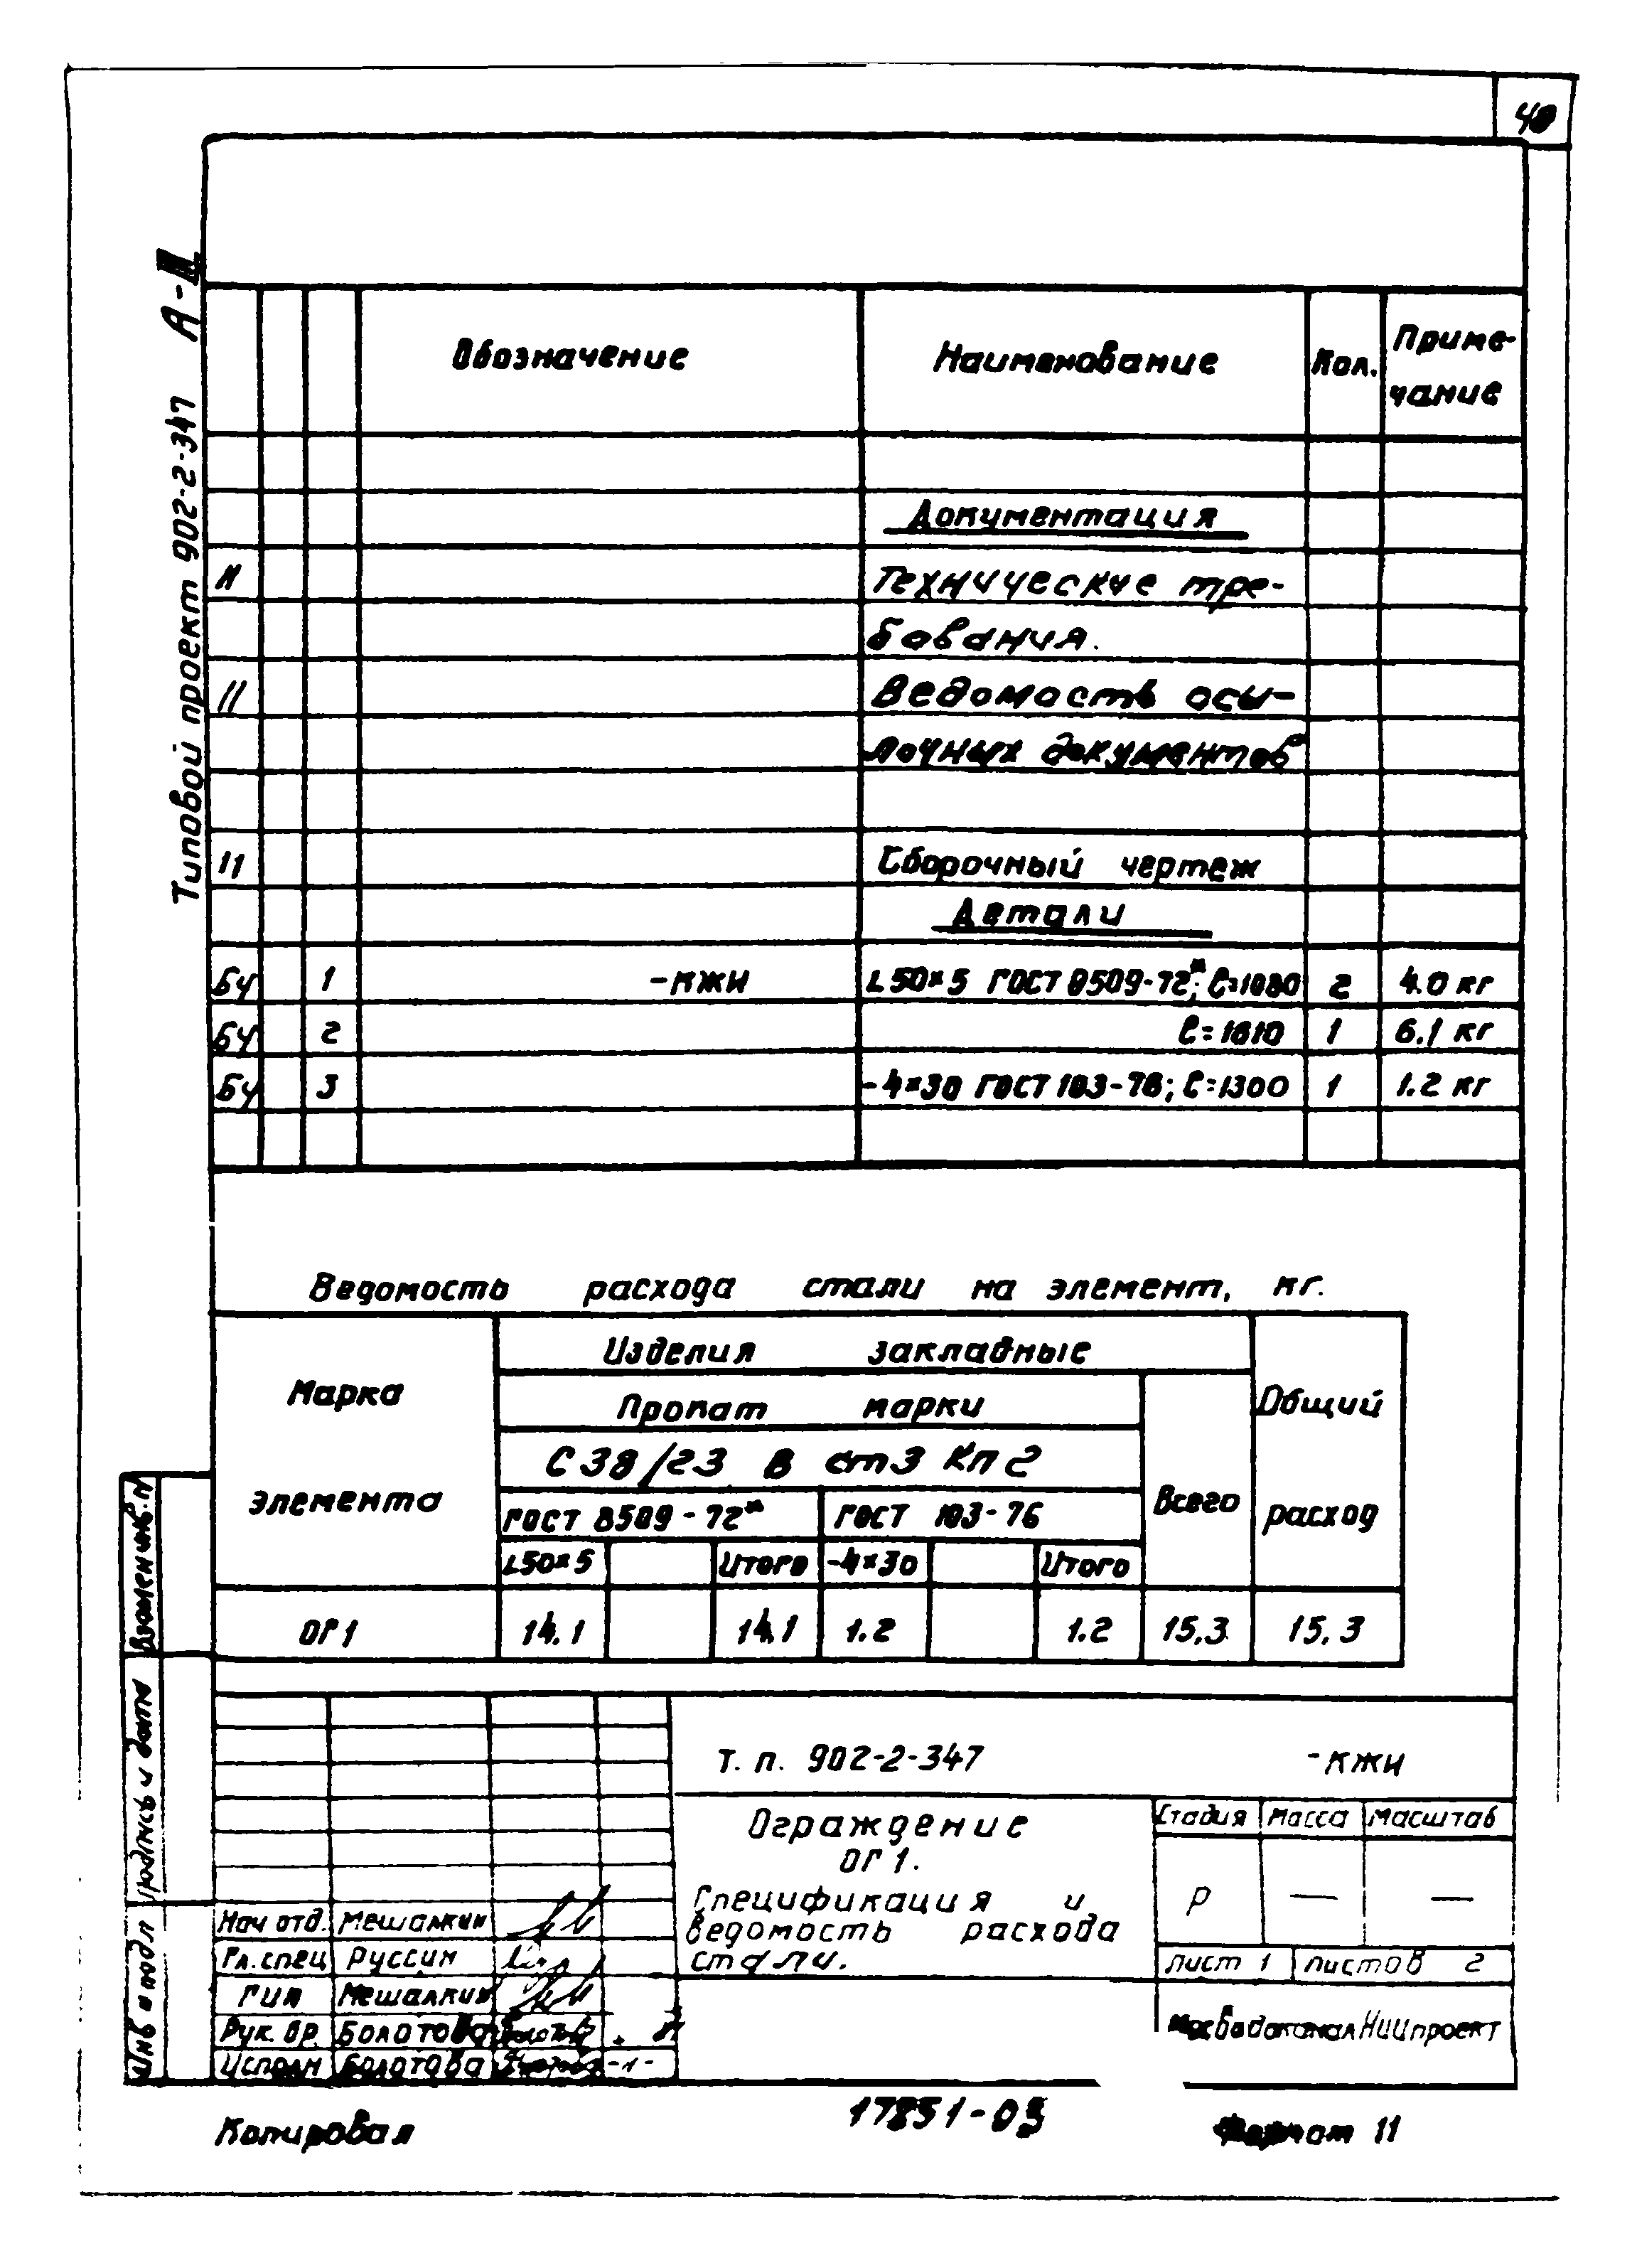 40
Типовой проект 902-2-347 А-III
Обозначение Наименование Кол. Приме-
чание
Документация
11 Технические тре-
бования.
11 Ведомость ссы-
лочных документов
11 Сборочный чертеж
Детали
БЧ 1 -КЖИ L 50×5 ГОСТ 8509-72*; ℓ=1080 2 4.0 кг
БЧ 2 ℓ=1610 1 6.1 кг
БЧ 3 -4×30 ГОСТ 103-76; ℓ=1300 1 1.2 кг
Ведомость расхода стали на элемент, кг.
Марка
элемента
Изделия закладные
Прокат марки
С 38/23 В ст3 Кп 2
ГОСТ 8509-72* ГОСТ 103-76
L50×5 Итого -4×30 Итого
Всего
Общий
расход
ОГ1 14.1 14.1 1.2 1.2 15,3 15,3
Т. п. 902-2-347 -КЖИ
Ограждение
ОГ 1.
Спецификация и
ведомость расхода
стали.
Стадия Масса Масштаб
Р — —
Лист 1 Листов 2
МосводоканалНИИпроект
Нач отд. Мешалкин
Гл. спец Руссин
ГИП Мешалкин
Рук. гр. Болотова
Исполн Болотова -1-
Взамен инв. N
Подпись и дата
Инв N подл
Копировал
17851-03
Формат 11